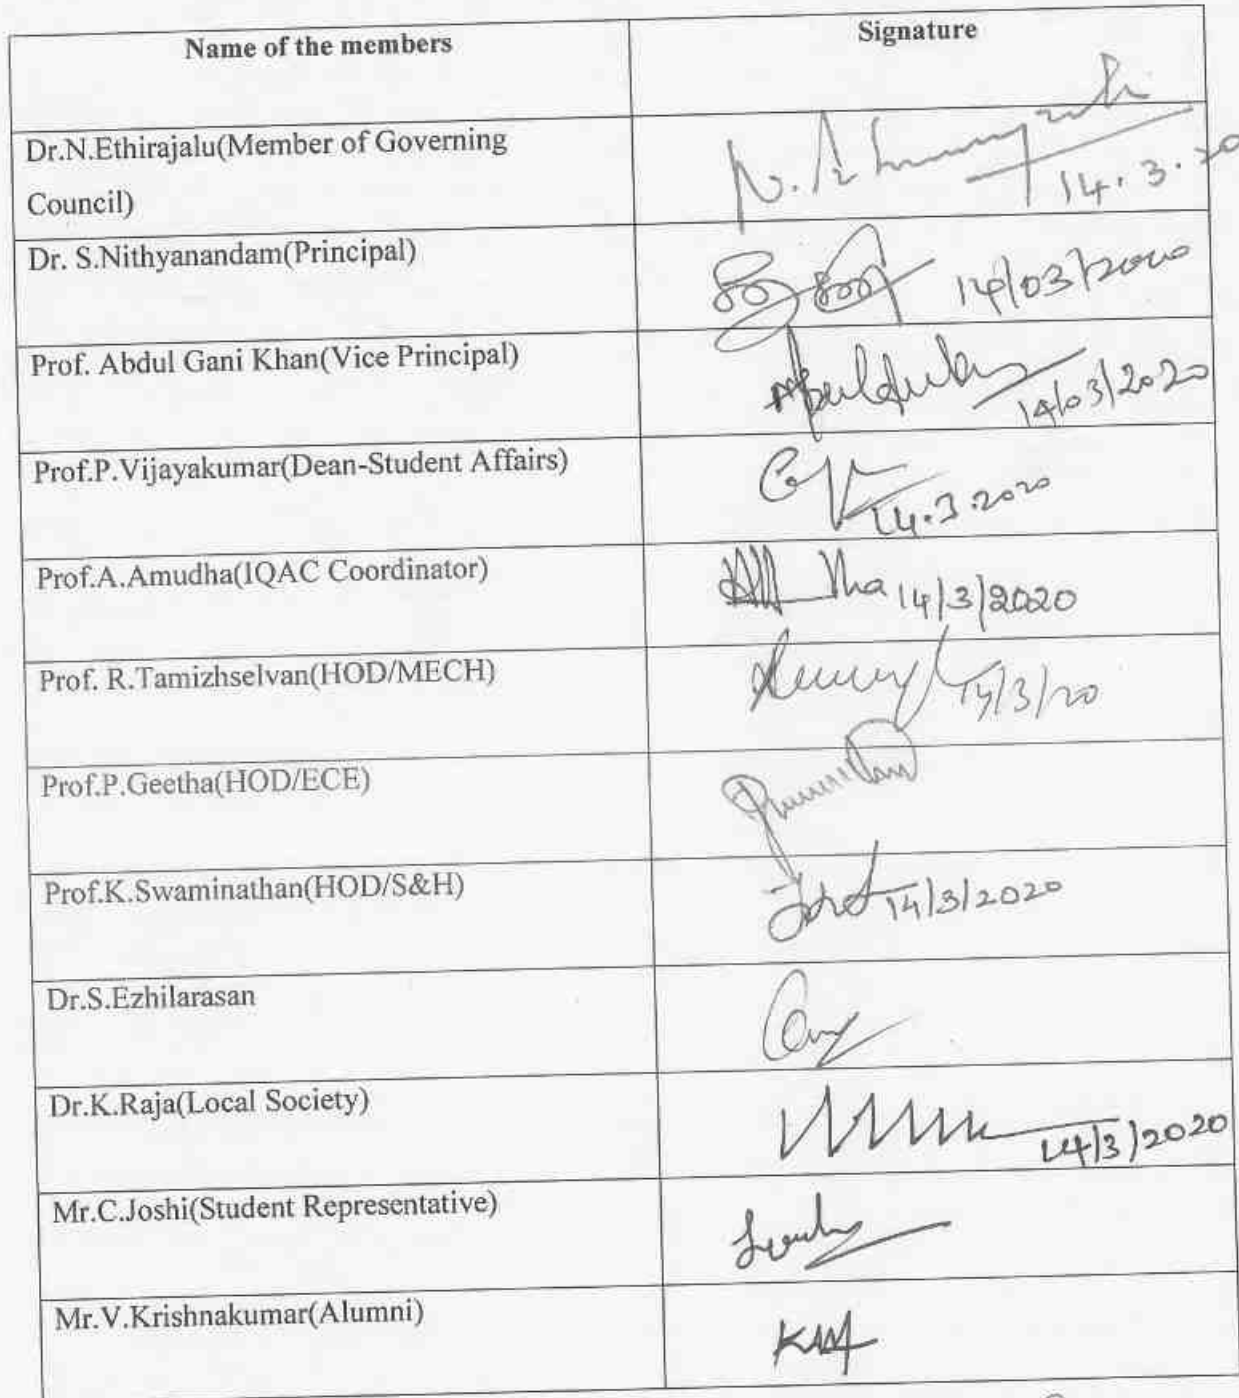 Name of the members
Signature
Dr.N.Ethirajalu(Member of Governing
Council)
14.3.20
Dr. S.Nithyanandam(Principal)
14/03/2020
Prof. Abdul Gani Khan(Vice Principal)
14/03/2020
Prof.P.Vijayakumar(Dean-Student Affairs)
14.3.2020
Prof.A.Amudha(IQAC Coordinator)
14/3/2020
Prof. R.Tamizhselvan(HOD/MECH)
14/3/20
Prof.P.Geetha(HOD/ECE)
Prof.K.Swaminathan(HOD/S&H)
14/3/2020
Dr.S.Ezhilarasan
Dr.K.Raja(Local Society)
14/3/2020
Mr.C.Joshi(Student Representative)
Mr.V.Krishnakumar(Alumni)